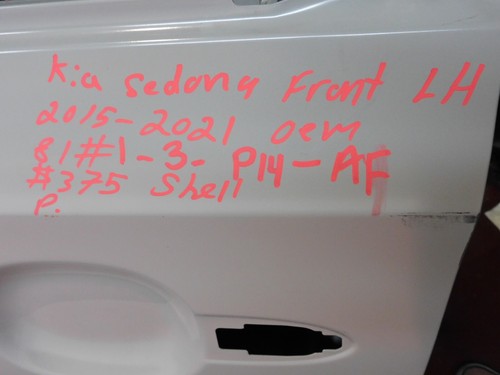 Kia Sedona Front LH
2015-2021 oem
81#1-3-P14-AF
#375 Shell
P.